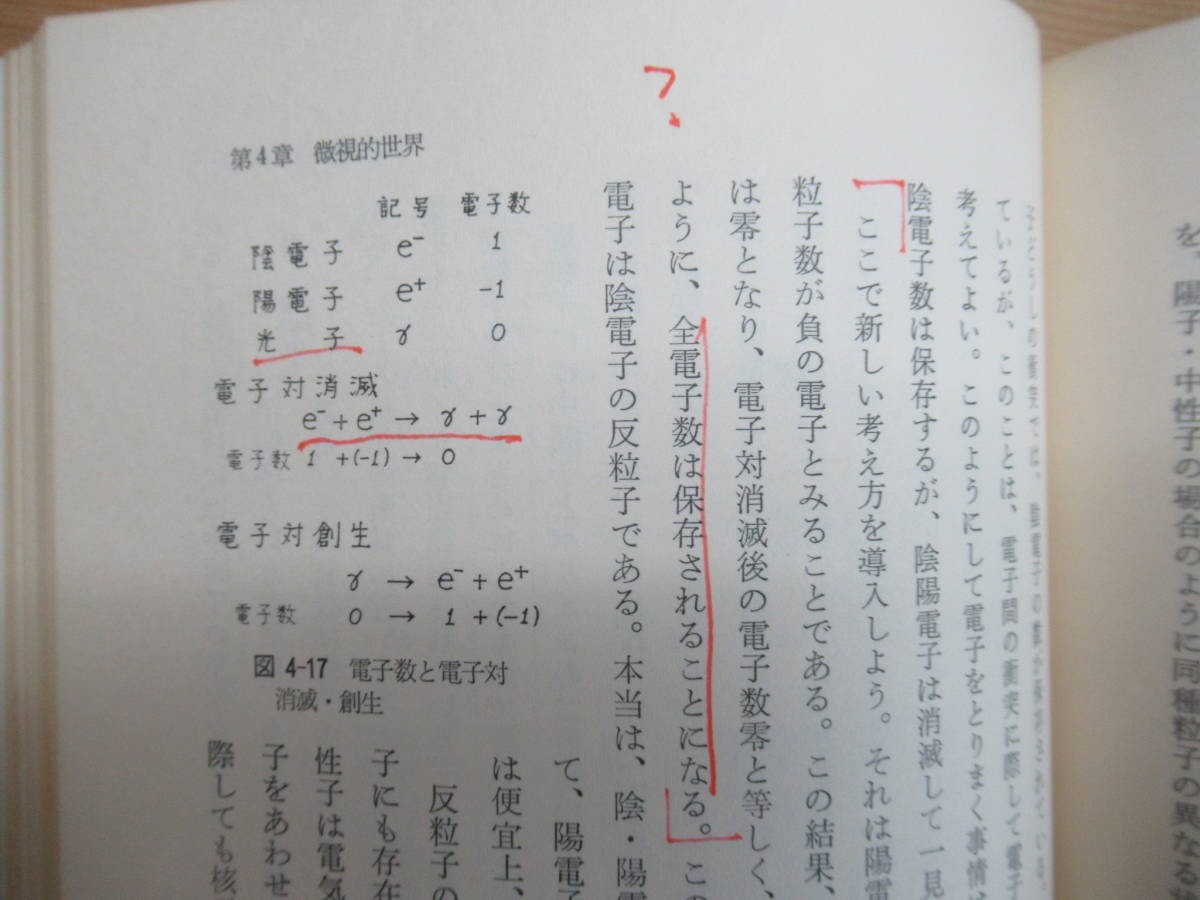 を、陽子・中性子の場合のように同種粒子の異なる
ているが、このことは、電子間の衝突に際して電子
考えてよい。このようにして電子をとりまく事情は
陰電子数は保存するが、陰陽電子は消滅して一見
ここで新しい考え方を導入しよう。それは陽電
粒子数が負の電子とみることである。この結果、
は零となり、電子対消滅後の電子数零と等しく、
ように、全電子数は保存されることになる。この
電子は陰電子の反粒子である。本当は、陰・陽電
?
第4章 微視的世界
記号 電子数
陰電子 e⁻ 1
陽電子 e⁺ -1
光子 γ 0
電子対消滅
e⁻+e⁺ → γ+γ
電子数 1 +(-1) → 0
電子対創生
γ → e⁻+e⁺
電子数 0 → 1 +(-1)
図 4-17 電子数と電子対
消滅・創生
て、陽電子
は便宜上、
反粒子の
子にも存在
性子は電気
子をあわせ
際しても核